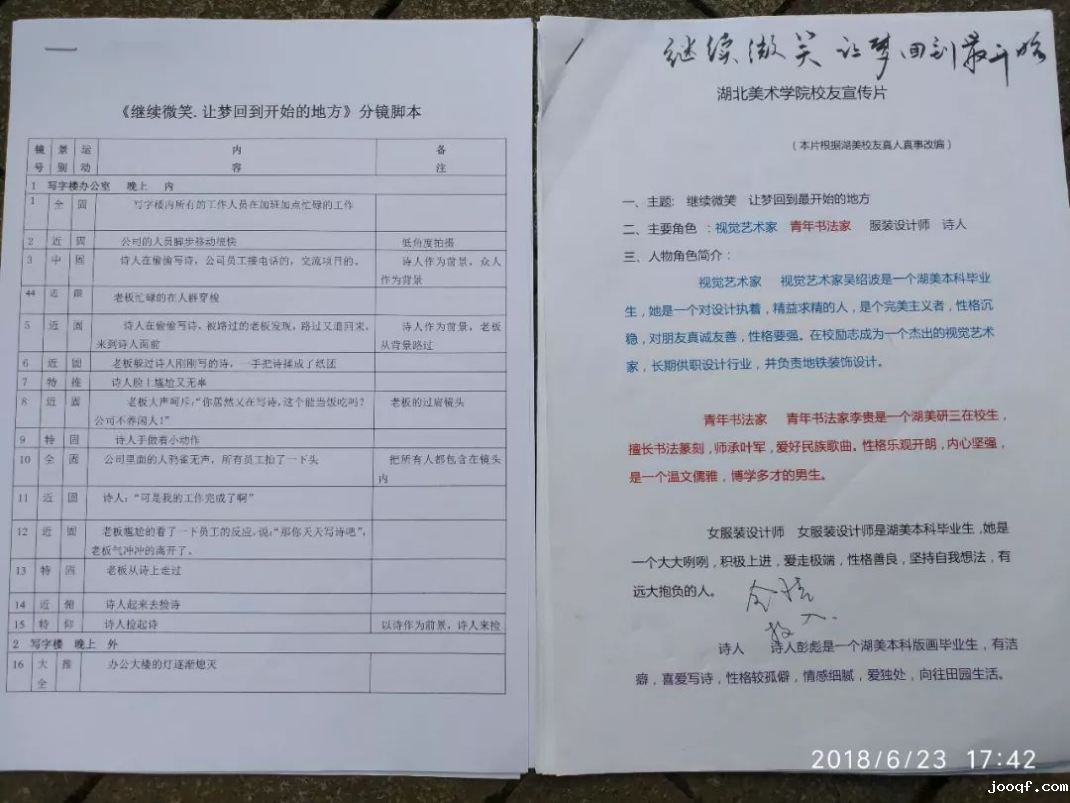 《继续微笑.让梦回到开始的地方》分镜脚本
镜 景 运 内 备
号 别 动 容 注
1 写字楼办公室 晚上 内
1 全 固 写字楼内所有的工作人员在加班加点忙碌的工作
2 近 固 公司的人员脚步移动很快 低角度拍摄
3 中 固 诗人在偷偷写诗,公司员工接电话的,交流项目的。 诗人作为前景,众人
作为背景
44 近 跟 老板忙碌的在人群穿梭
5 近 固 诗人在偷偷写诗,被路过的老板发现,路过又退回来, 诗人作为前景,老板
来到诗人面前 从背景路过
6 近 固 老板般过诗人刚刚写的诗,一手把诗揉成了纸团
7 特 推 诗人脸上尴尬又无辜
8 近 固 老板大声呵斥:“你居然又在写诗,这个能当饭吃吗? 老板的过肩镜头
公司不养闲人!”
9 特 固 诗人手做着小动作
10 全 固 公司里面的人鸦雀无声,所有员工抬了一下头 把所有人都包含在镜头
内
11 近 固 诗人:“可是我的工作完成了啊”
12 近 固 老板尴尬的看了一下员工的反应,说:“那你天天写诗吧”,
老板气冲冲的离开了。
13 特 固 老板从诗上走过
14 近 俯 诗人起来去捡诗
15 特 仰 诗人捡起诗 以诗作为前景,诗人来捡
2 写字楼 晚上 外
16 大 推 办公大楼的灯逐渐熄灭
全
继续微笑 让梦回到最开始
湖北美术学院校友宣传片
(本片根据湖美校友真人真事改编)
一、主题: 继续微笑 让梦回到最开始的地方
二、主要角色 :视觉艺术家 青年书法家 服装设计师 诗人
三、人物角色简介:
视觉艺术家 视觉艺术家吴绍波是一个湖美本科毕业
生,她是一个对设计执着,精益求精的人,是个完美主义者,性格沉
稳,对朋友真诚友善,性格要强。在校励志成为一个杰出的视觉艺术
家,长期供职设计行业,并负责地铁装饰设计。
青年书法家 青年书法家李贵是一个湖美研三在校生,
擅长书法篆刻,师承叶军,爱好民族歌曲。性格乐观开朗,内心坚强,
是一个温文儒雅,博学多才的男生。
女服装设计师 女服装设计师是湖美本科毕业生,她是
一个大大咧咧,积极上进,爱走极端,性格善良,坚持自我想法,有
远大抱负的人。
诗人 诗人彭彪是一个湖美本科版画毕业生,有洁
癖,喜爱写诗,性格较孤僻,情感细腻,爱独处,向往田园生活。
2018/6/23 17:42
jooqf.com